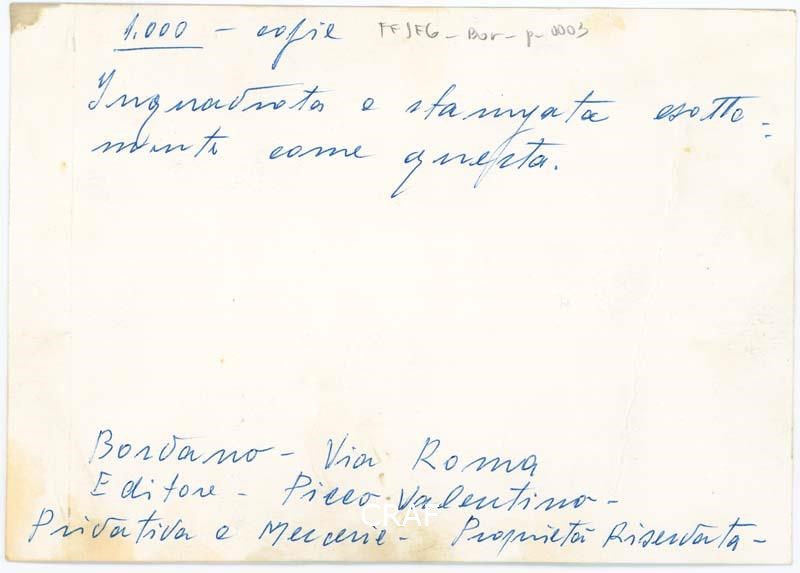 1.000 - copie FFJFG - Bor - p - 0003
Inquadrata e stampata esatta =
mente come questa.
Bordano - Via Roma
Editore - Picco Valentino -
Privativa e Mercerie - Proprietà Riservata -
CRAF